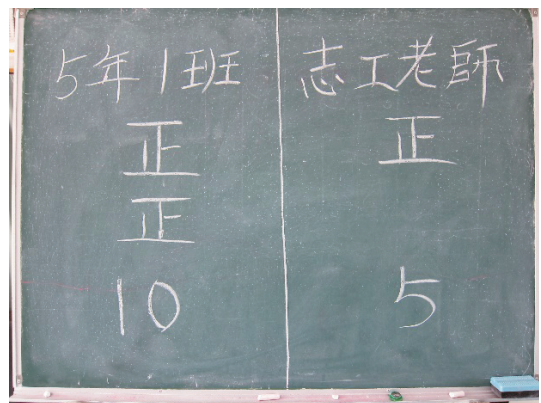 5年1班
正
正
10
志工老師
正
5